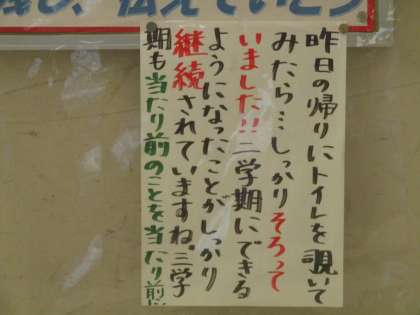 残し、伝えていこう
昨日の帰りにトイレを覗いて
みたら…しっかりそろって
いました!!二学期にできる
ようになったことがしっかり
継続されていますね。三学
期も当たり前のことを当たり前